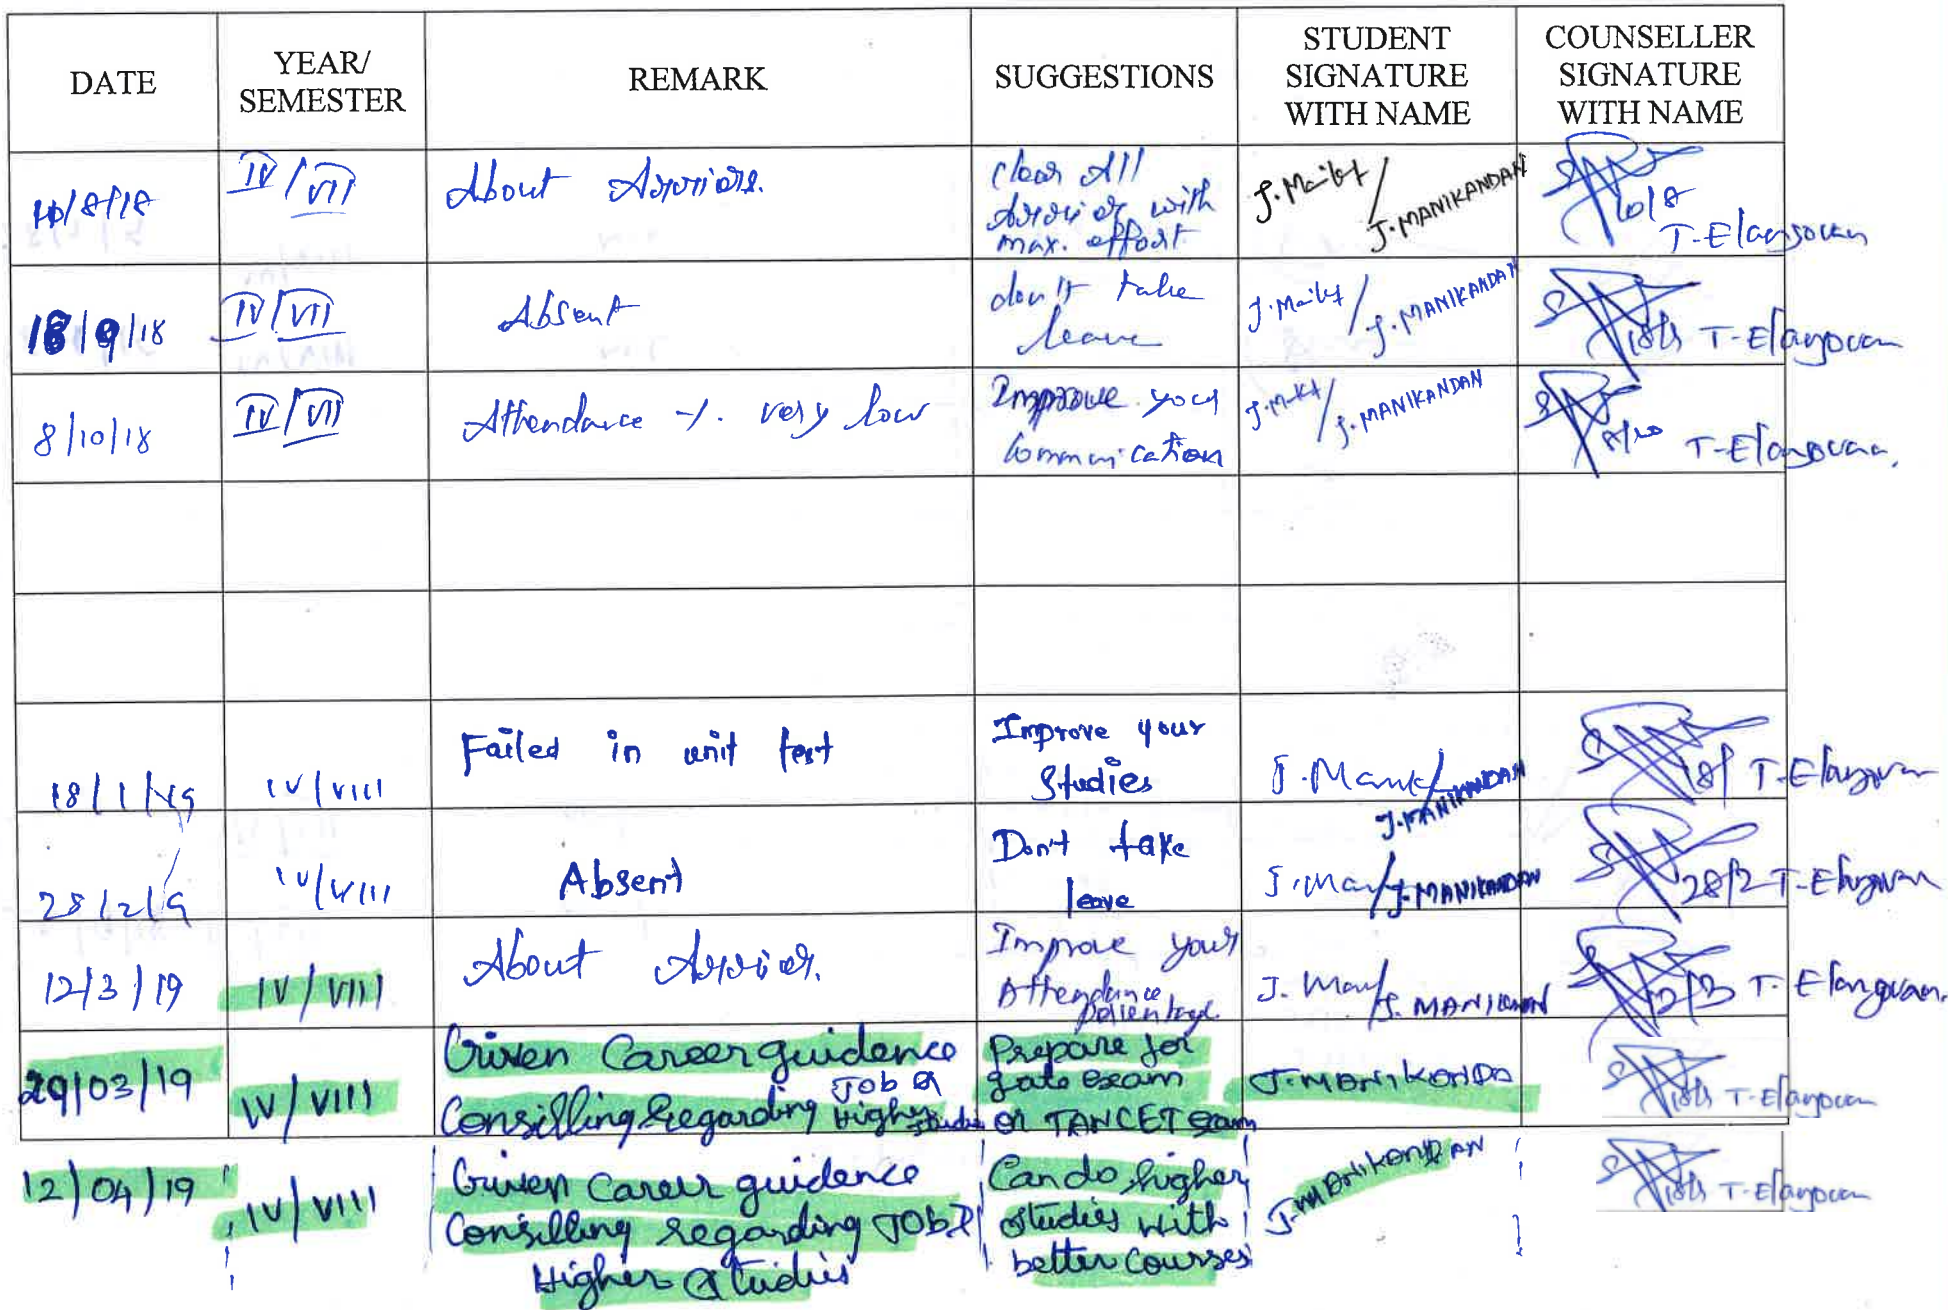 DATE
YEAR/
SEMESTER
REMARK
SUGGESTIONS
STUDENT
SIGNATURE
WITH NAME
COUNSELLER
SIGNATURE
WITH NAME
10/8/18
IV/VII
About Arriors.
clear All
Arrior with
max. effort
J. MANIKANDAN
10/8
T-Elangovan
18/9/18
IV/VII
Absent
don't take
leave
J. MANIKANDAN
T-Elangovan
8/10/18
IV/VII
Attendance -/. very low
Improve your
Communication
J. MANIKANDAN
8/10
T-Elangovan.
18/1/19
IV/VIII
Failed in unit test
Improve your
Studies
J. MANIKANDAN
18/1
T-Elangovan
28/2/19
IV/VIII
Absent
Don't take
leave
J. MANIKANDAN
28/2 T-Elangovan
12/3/19
IV/VIII
About Arrior.
Improve your
Attendance
percentage.
J. MANIKANDAN
12/3 T. Elangovan.
29/03/19
IV/VIII
Given Career guidence
Consilling Regarding Job or
Higher studies
Prepare for
gate exam
or TANCET exam
J. MANIKANDA
T-Elangovan
12/04/19
IV/VIII
Given Career guidence
Consilling regarding JOB &
Higher Studies
Can do higher
studies with
better courses
J. MANIKANDAN
T-Elangovan